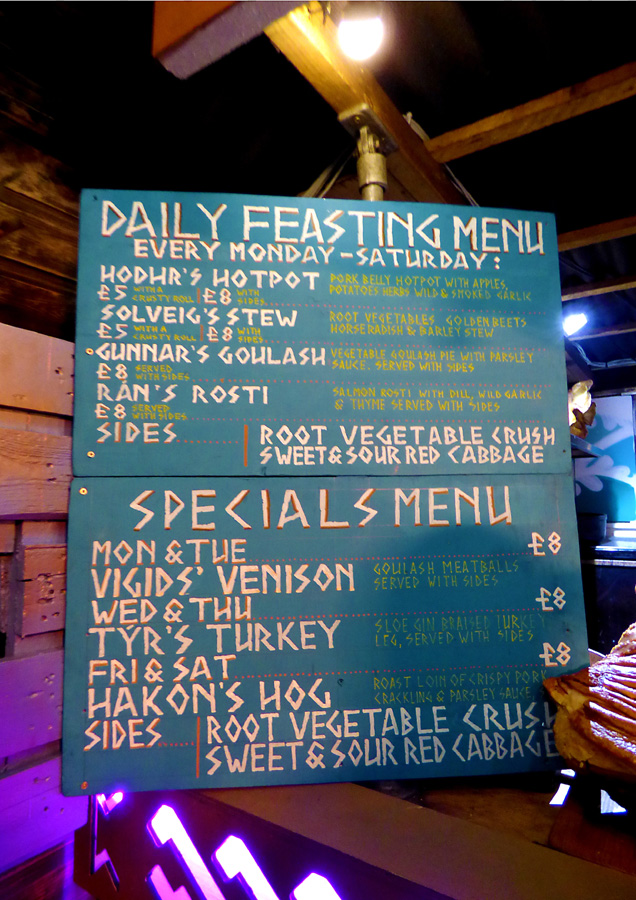 DAILY FEASTING MENU
EVERY MONDAY-SATURDAY:
HODHR'S HOTPOT
PORK BELLY HOTPOT WITH APPLES,
POTATOES HERBS WILD & SMOKED GARLIC
£5 WITH A CRUSTY ROLL | £8 WITH SIDES
SOLVEIG'S STEW
ROOT VEGETABLES GOLDEN BEETS
HORSERADISH & BARLEY STEW
£5 WITH A CRUSTY ROLL | £8 WITH SIDES
GUNNAR'S GOULASH
VEGETABLE GOULASH PIE WITH PARSLEY
SAUCE. SERVED WITH SIDES
£8 SERVED WITH SIDES
RÁN'S ROSTI
SALMON ROSTI WITH DILL, WILD GARLIC
& THYME SERVED WITH SIDES
£8 SERVED WITH SIDES
SIDES
ROOT VEGETABLE CRUSH
SWEET & SOUR RED CABBAGE
SPECIALS MENU
MON & TUE £8
VIGIDS' VENISON
GOULASH MEATBALLS
SERVED WITH SIDES
WED & THU £8
TÝR'S TURKEY
SLOE GIN BRAISED TURKEY
LEG, SERVED WITH SIDES
FRI & SAT £8
HAKON'S HOG
ROAST LOIN OF CRISPY PORK
CRACKLING & PARSLEY SAUCE
SIDES
ROOT VEGETABLE CRUSH
SWEET & SOUR RED CABBAGE